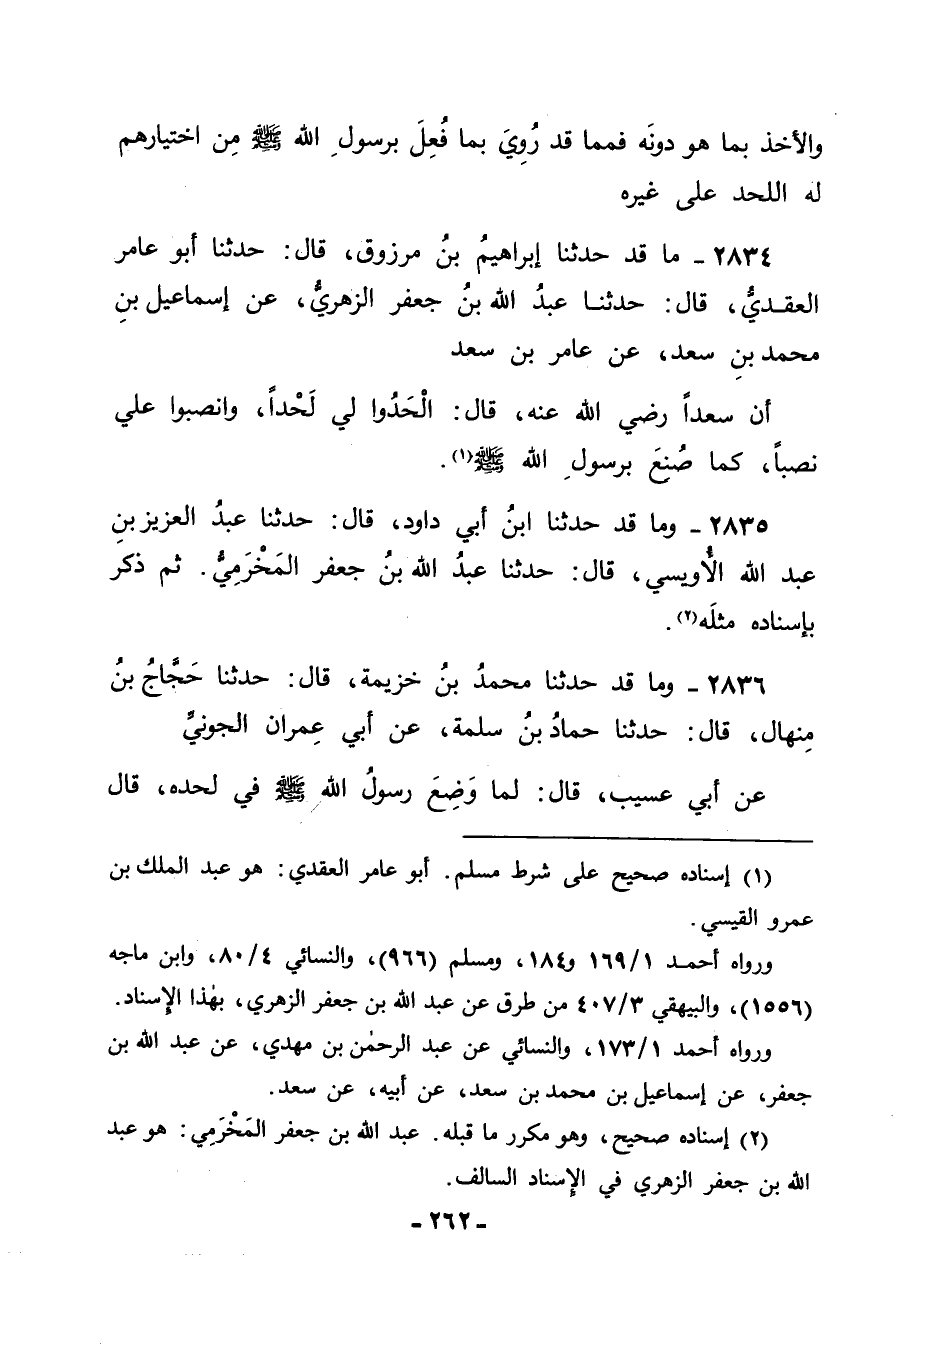 والأخذ بما هو دونَه فمما قد رُوِيَ بما فُعِلَ برسولِ الله ﷺ مِن اختيارهم
له اللحد على غيره
٢٨٣٤ ـ ما قد حدثنا إبراهيمُ بنُ مرزوق، قال: حدثنا أبو عامر
العقـديُّ، قال: حدثنـا عبدُ الله بنُ جعفر الزهريُّ، عن إسماعيل بنِ
محمد بنِ سعد، عن عامر بن سعد
أن سعداً رضي الله عنه، قال: الْحَدُوا لي لَحْداً، وانصبوا علي
نصباً، كما صُنِعَ برسولِ الله ﷺ(١).
٢٨٣٥ ـ وما قد حدثنا ابنُ أبي داود، قال: حدثنا عبدُ العزيز بنِ
عبد الله الأُويسي، قال: حدثنا عبدُ الله بنُ جعفر المَخْرَميُّ. ثم ذكر
بإسناده مثلَه(٢).
٢٨٣٦ ـ وما قد حدثنا محمدُ بنُ خزيمة، قال: حدثنا حَجَّاجُ بنُ
مِنهال، قال: حدثنا حمادُ بنُ سلمة، عن أبي عِمران الجونيِّ
عن أبي عسيب، قال: لما وَضِعَ رسولُ اللهِ ﷺ في لحده، قال
(١) إسناده صحيح على شرط مسلم. أبو عامر العقدي: هو عبد الملك بن
عمرو القيسي.
ورواه أحمـد ١٦٩/١ و١٨٤، ومسلم (٩٦٦)، والنسائي ٨٠/٤، وابن ماجه
(١٥٥٦)، والبيهقي ٤٠٧/٣ من طرق عن عبد الله بن جعفر الزهري، بهٰذا الإِسناد.
ورواه أحمد ١٧٣/١، والنسائي عن عبد الرحمٰن بن مهدي، عن عبد الله بن
جعفر، عن إسماعيل بن محمد بن سعد، عن أبيه، عن سعد.
(٢) إسناده صحيح، وهو مكرر ما قبله. عبد الله بن جعفر المَخْرَمِي: هو عبد
الله بن جعفر الزهري في الإِسناد السالف.
ـ ٢٦٢ ـ